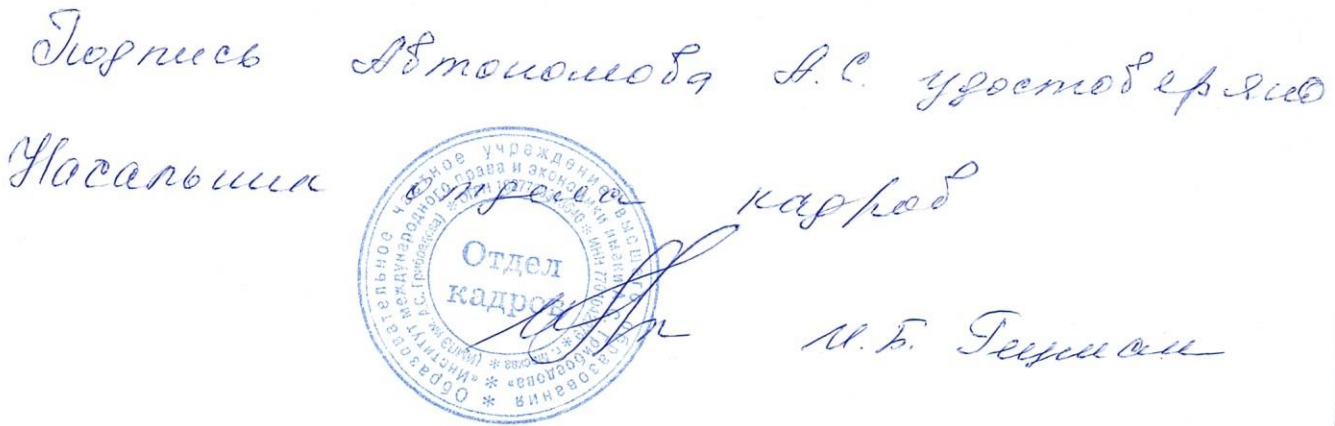 Подпись Автономова А.С. удостоверяю
Начальник отдела кадров
И.Б.
Образовательное частное учреждение высшего образования *
«Институт международного права и экономики имени А.С. Грибоедова» *
(ИМПЭ им. А.С. Грибоедова) * ОГРН * ИНН * г. Москва *
Отдел
кадров